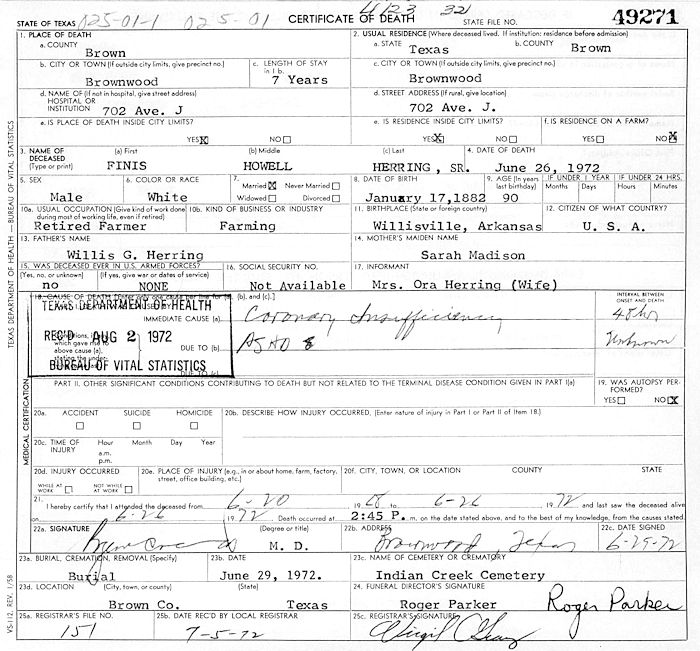 STATE OF TEXAS 025-01-1 025-01 CERTIFICATE OF DEATH 4123 321 STATE FILE NO. 49271
1. PLACE OF DEATH
a. COUNTY
Brown
2. USUAL RESIDENCE (Where deceased lived. If institution: residence before admission)
a. STATE Texas b. COUNTY Brown
b. CITY OR TOWN (If outside city limits, give precinct no.)
Brownwood
c. LENGTH OF STAY in 1 b.
7 Years
c. CITY OR TOWN (If outside city limits, give precinct no.)
Brownwood
d. NAME OF (If not in hospital, give street address)
HOSPITAL OR
INSTITUTION 702 Ave. J
d. STREET ADDRESS (If rural, give location)
702 Ave. J.
e. IS PLACE OF DEATH INSIDE CITY LIMITS?
YES X NO
e. IS RESIDENCE INSIDE CITY LIMITS?
YES X NO
f. IS RESIDENCE ON A FARM?
YES NO X
3. NAME OF DECEASED (Type or print)
(a) First (b) Middle (c) Last
FINIS HOWELL HERRING, SR.
4. DATE OF DEATH
June 26, 1972
5. SEX
Male
6. COLOR OR RACE
White
7.
Married X Never Married
Widowed Divorced
8. DATE OF BIRTH
January 17,1882
9. AGE (In years last birthday)
90
IF UNDER 1 YEAR
Months Days
IF UNDER 24 HRS.
Hours Minutes
10a. USUAL OCCUPATION (Give kind of work done during most of working life, even if retired)
Retired Farmer
10b. KIND OF BUSINESS OR INDUSTRY
Farming
11. BIRTHPLACE (State or foreign country)
Willisville, Arkansas
12. CITIZEN OF WHAT COUNTRY?
U. S. A.
13. FATHER'S NAME
Willis G. Herring
14. MOTHER'S MAIDEN NAME
Sarah Madison
15. WAS DECEASED EVER IN U.S. ARMED FORCES?
(Yes, no, or unknown) (If yes, give war or dates of service)
no NONE
16. SOCIAL SECURITY NO.
Not Available
17. INFORMANT
Mrs. Ora Herring (Wife)
18. CAUSE OF DEATH (b), and (c).]
IMMEDIATE CAUSE (a)
Coronary Insufficiency
INTERVAL BETWEEN ONSET AND DEATH
48 hr
which gave rise to
above cause (a),
DUE TO (b)
ASHD
Unknown
DUE TO (c)
TEXAS DEPARTMENT OF HEALTH
REC'D AUG 2 1972
BUREAU OF VITAL STATISTICS
PART II. OTHER SIGNIFICANT CONDITIONS CONTRIBUTING TO DEATH BUT NOT RELATED TO THE TERMINAL DISEASE CONDITION GIVEN IN PART I(a)
19. WAS AUTOPSY PERFORMED?
YES NO X
20a. ACCIDENT SUICIDE HOMICIDE
20b. DESCRIBE HOW INJURY OCCURRED. (Enter nature of injury in Part I or Part II of Item 18.)
20c. TIME OF INJURY
Hour Month Day Year
a.m.
p.m.
20d. INJURY OCCURRED
WHILE AT WORK NOT WHILE AT WORK
20e. PLACE OF INJURY (e.g., in or about home, farm, factory, street, office building, etc.)
20f. CITY, TOWN, OR LOCATION COUNTY STATE
21. I hereby certify that I attended the deceased from 6-20 1968 to 6-26 1972 and last saw the deceased alive
on 6-26 1972 Death occurred at 2:45 P. m. on the date stated above, and to the best of my knowledge, from the causes stated.
22a. SIGNATURE (Degree or title)
M. D.
22b. ADDRESS
Brownwood Texas
22c. DATE SIGNED
6-29-72
23a. BURIAL, CREMATION, REMOVAL (Specify)
Burial
23b. DATE
June 29, 1972.
23c. NAME OF CEMETERY OR CREMATORY
Indian Creek Cemetery
23d. LOCATION (City, town, or county) (State)
Brown Co. Texas
24. FUNERAL DIRECTOR'S SIGNATURE
Roger Parker Roger Parker
25a. REGISTRAR'S FILE NO.
151
25b. DATE REC'D BY LOCAL REGISTRAR
7-5-72
25c. REGISTRAR'S SIGNATURE
Virgil
TEXAS DEPARTMENT OF HEALTH — BUREAU OF VITAL STATISTICS
MEDICAL CERTIFICATION
VS-112, REV. 1/58